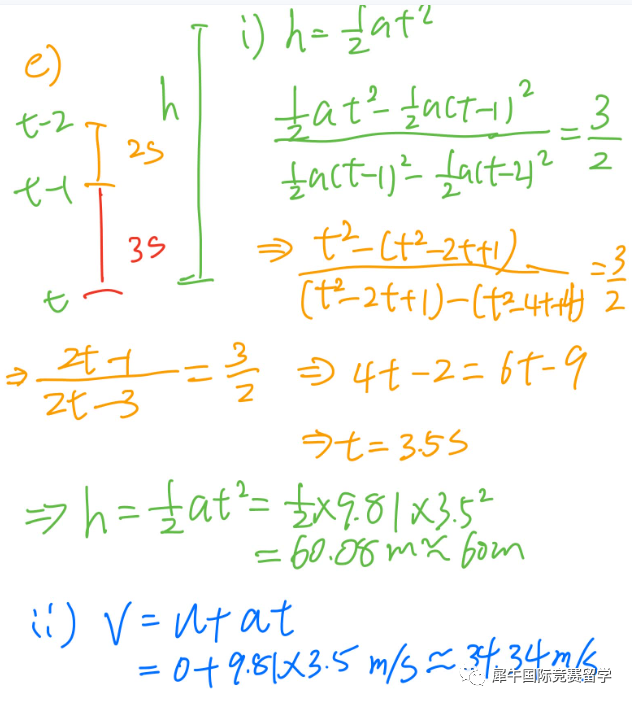 e)
t-2
t-1
t
2s
3s
h
i) h = ½at²
(½at² - ½a(t-1)²) / (½a(t-1)² - ½a(t-2)²) = 3/2
⇒ (t² - (t² - 2t + 1)) / ((t² - 2t + 1) - (t² - 4t + 4)) = 3/2
⇒ (2t - 1) / (2t - 3) = 3/2 ⇒ 4t - 2 = 6t - 9
⇒ t = 3.5s
⇒ h = ½at² = ½ × 9.81 × 3.5²
= 60.08 m ≈ 60m
ii) V = u + at
= 0 + 9.81 × 3.5 m/s ≈ 34.34 m/s
犀牛国际竞赛留学